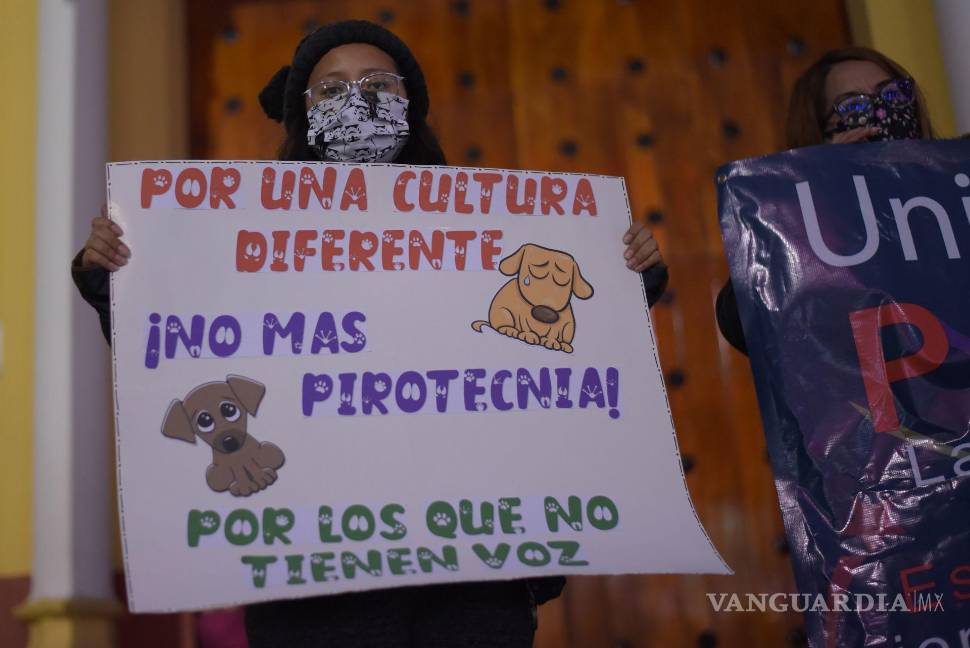 POR UNA CULTURA
DIFERENTE
¡NO MAS
PIROTECNIA!
POR LOS QUE NO
TIENEN VOZ
Uni
P
La
Es
VANGUARDIA|MX